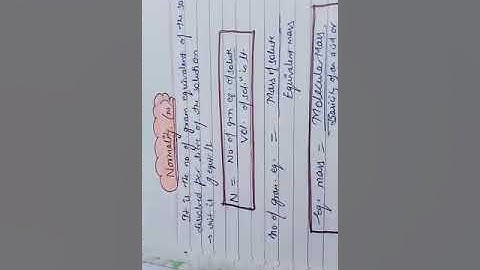 Normality (N)
• It is the no of gram equivalent of the so
dissolved per litre of the solution
→ unit is g equiv/lt
N = No of gm eq. of solute
Vol. of solⁿ in lt
No of gram. eq. = Mass of solute
Equivalent mass
Eq. mass = Molecular Mass
Basicity of an acid or